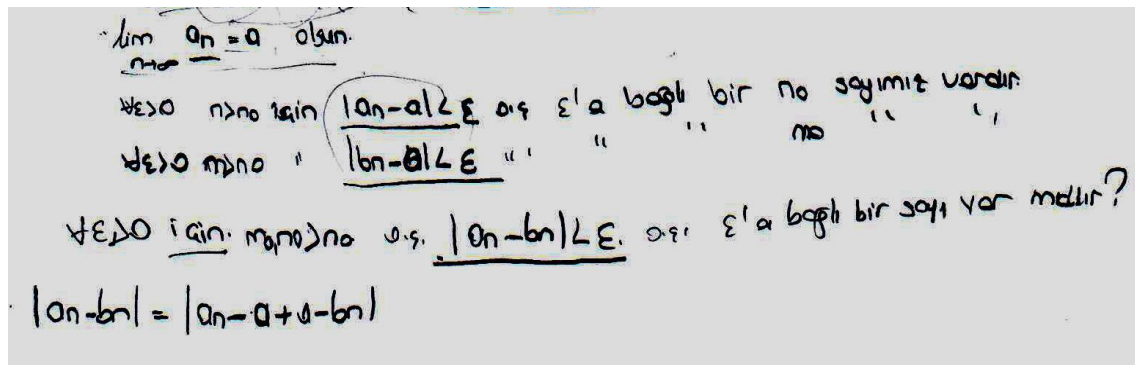 lim an = a olsun.
n→∞
∀ε>0 n>no için |an-a|<ε ö.ş ε'a bağlı bir no sayımız vardır.
∀ε>0 m>no " |bn-a|<ε " " " " mo " "
∀ε>0 için. m,no>no ö.ş. |an-bn|<ε. ö.ş. ε'a bağlı bir sayı var mıdır?
|an-bn| = |an-a+a-bn|